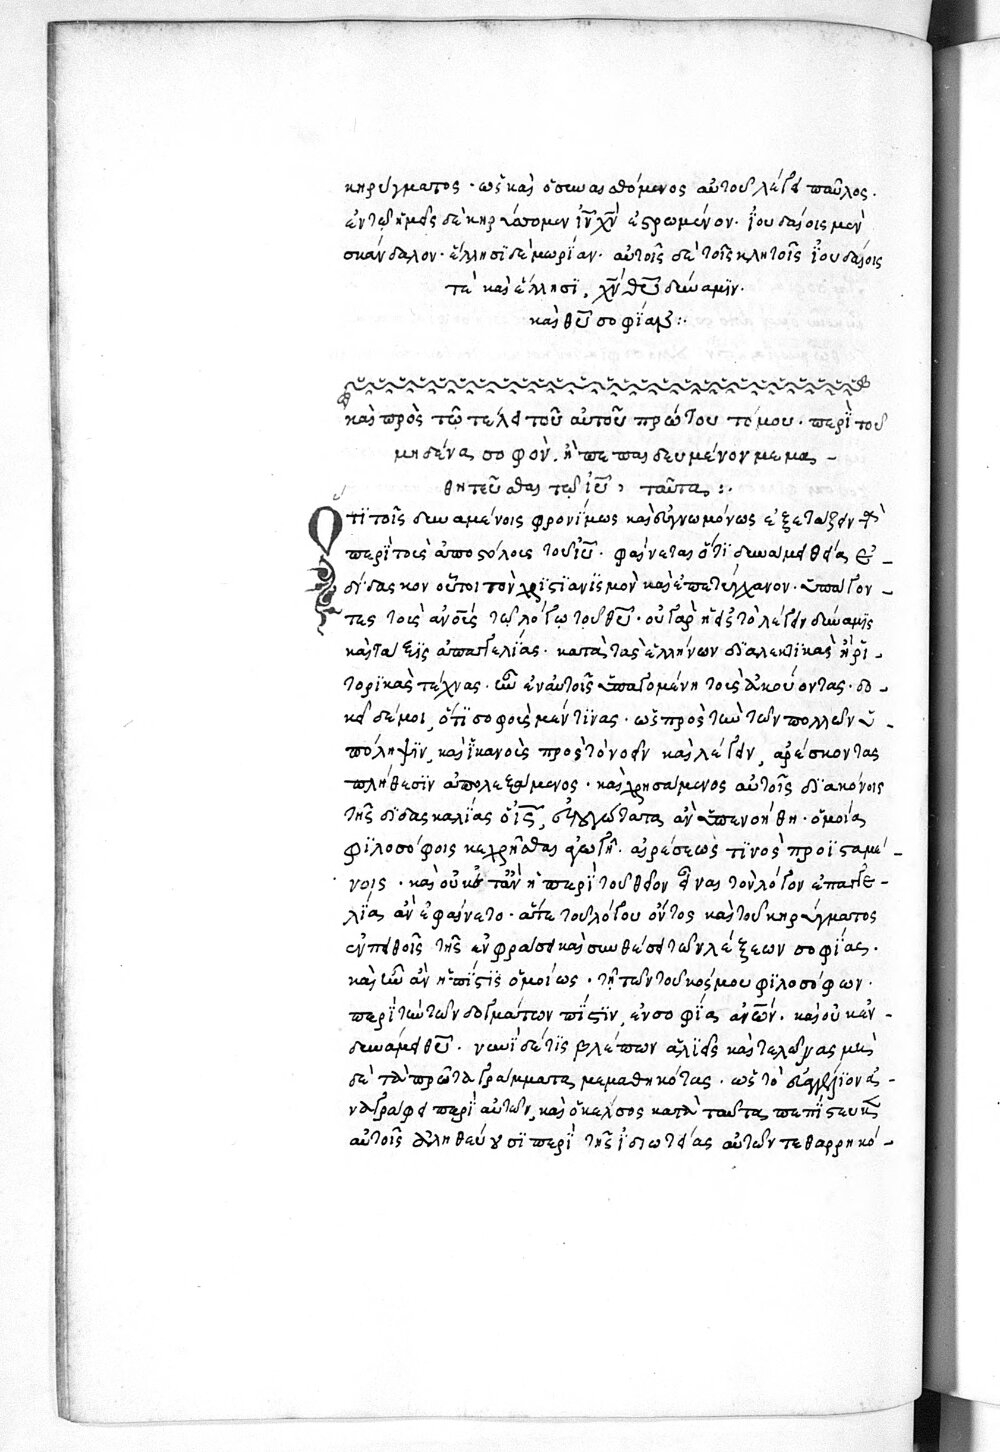 κηρύγματος · ὡς καὶ ὁ συναισθόμενος αὐτοῦ λέγει παῦλος ·
ἐν τῷ ἡμεῖς δὲ κηρύσσομεν ἰν̅ χν̅ ἐσρωμένον · ἰουδαίοις μὲν
σκάνδαλον · ἕλλησι δὲ μωρίαν · αὐτοῖς δὲ τοῖς κλητοῖς ἰουδαίοις
τὲ καὶ ἕλλησι, χν̅ θυ̅ δύναμιν ·
καὶ θυ̅ σοφίαν :·
καὶ πρὸς τῷ τέλει τοῦ αὐτοῦ πρώτου τόμου · περὶ τοῦ
μηδένα σοφὸν, ἢ πεπαιδευμένον μεμα -
θητεῦσθαι τῷ ιυ̅, ταῦτα :·
Ὅτι τοῖς δυναμένοις φρονίμως καὶ εὐγνωμόνως ἐξετάζειν τὰ
περὶ τοὺς ἀποστόλους τοῦ ιυ̅ · φαίνεται ὅτι δυνάμει θείᾳ ἐ -
δίδασκον οὗτοι τὸν χριστιανισμὸν καὶ ἐπετύγχανον · ὑπάγον -
τες τοὺς ἀνο̅υς τῷ λόγῳ τοῦ θυ̅ · οὐ γὰρ ἡ εἰς τὸ λέγειν δύναμις
καὶ τάξις ἀπαγγελίας · κατὰ τὰς ἑλλήνων διαλεκτικὰς ἢ ῥη -
τορικὰς τέχνας · ἦν ἐν αὐτοῖς ὑπαγομένη τοὺς ἀκούοντας · δο -
κεῖ δέ μοι, ὅτι σοφοὺς μέν τινας · ὡς πρὸς τὴν τῶν πολλῶν ὑ -
πόληψιν, καὶ ἱκανοὺς πρὸς τὸ νοεῖν καὶ λέγειν, ἀρέσκοντας
πλήθεσιν ἀπολεξάμενος · καὶ χρησάμενος αὐτοῖς διακόνοις
τῆς διδασκαλίας ὁ ις̅, εὐλογώτατα ἂν ὑπενοήθη · ὁμοίᾳ
φιλοσόφοις κεχρῆσθαι ἀγωγῇ · αἱρέσεώς τινος προϊσταμέ -
νοις · καὶ οὐκέτ' ἂν ἡ περὶ τοῦ θεῖον εἶναι τὸν λόγον ἐπαγγε -
λία ἀνεφαίνετο · ἅτε τοῦ λόγου ὄντος καὶ τοῦ κηρύγματος
ἐν πειθοῖ τῆς ἐν φράσει καὶ συνθέσει τῶν λέξεων σοφίας ·
καὶ ἦν ἂν ἡ πίστις ὁμοίως · τῇ τῶν τοῦ κόσμου φιλοσόφων ·
περὶ τῶν τῶν δογμάτων πίστιν, ἐν σοφίᾳ ἀνω̅ν · καὶ οὐκ ἐν -
δυνάμει θυ̅ · νυνὶ δὲ τίς βλέπων ἁλιεῖς καὶ τελώνας μη -
δὲ τὰ πρῶτα γράμματα μεμαθηκότας · ὡς τὸ εὐαγγέλιον ἀ -
ναγράφει περὶ αὐτῶν, καὶ ὁ κέλσος κατὰ ταῦτα πεπίστευκεν
αὐτοῖς ἀληθεύουσι περὶ τῆς ἰδιωτείας αὐτῶν τεθαρρηκό -